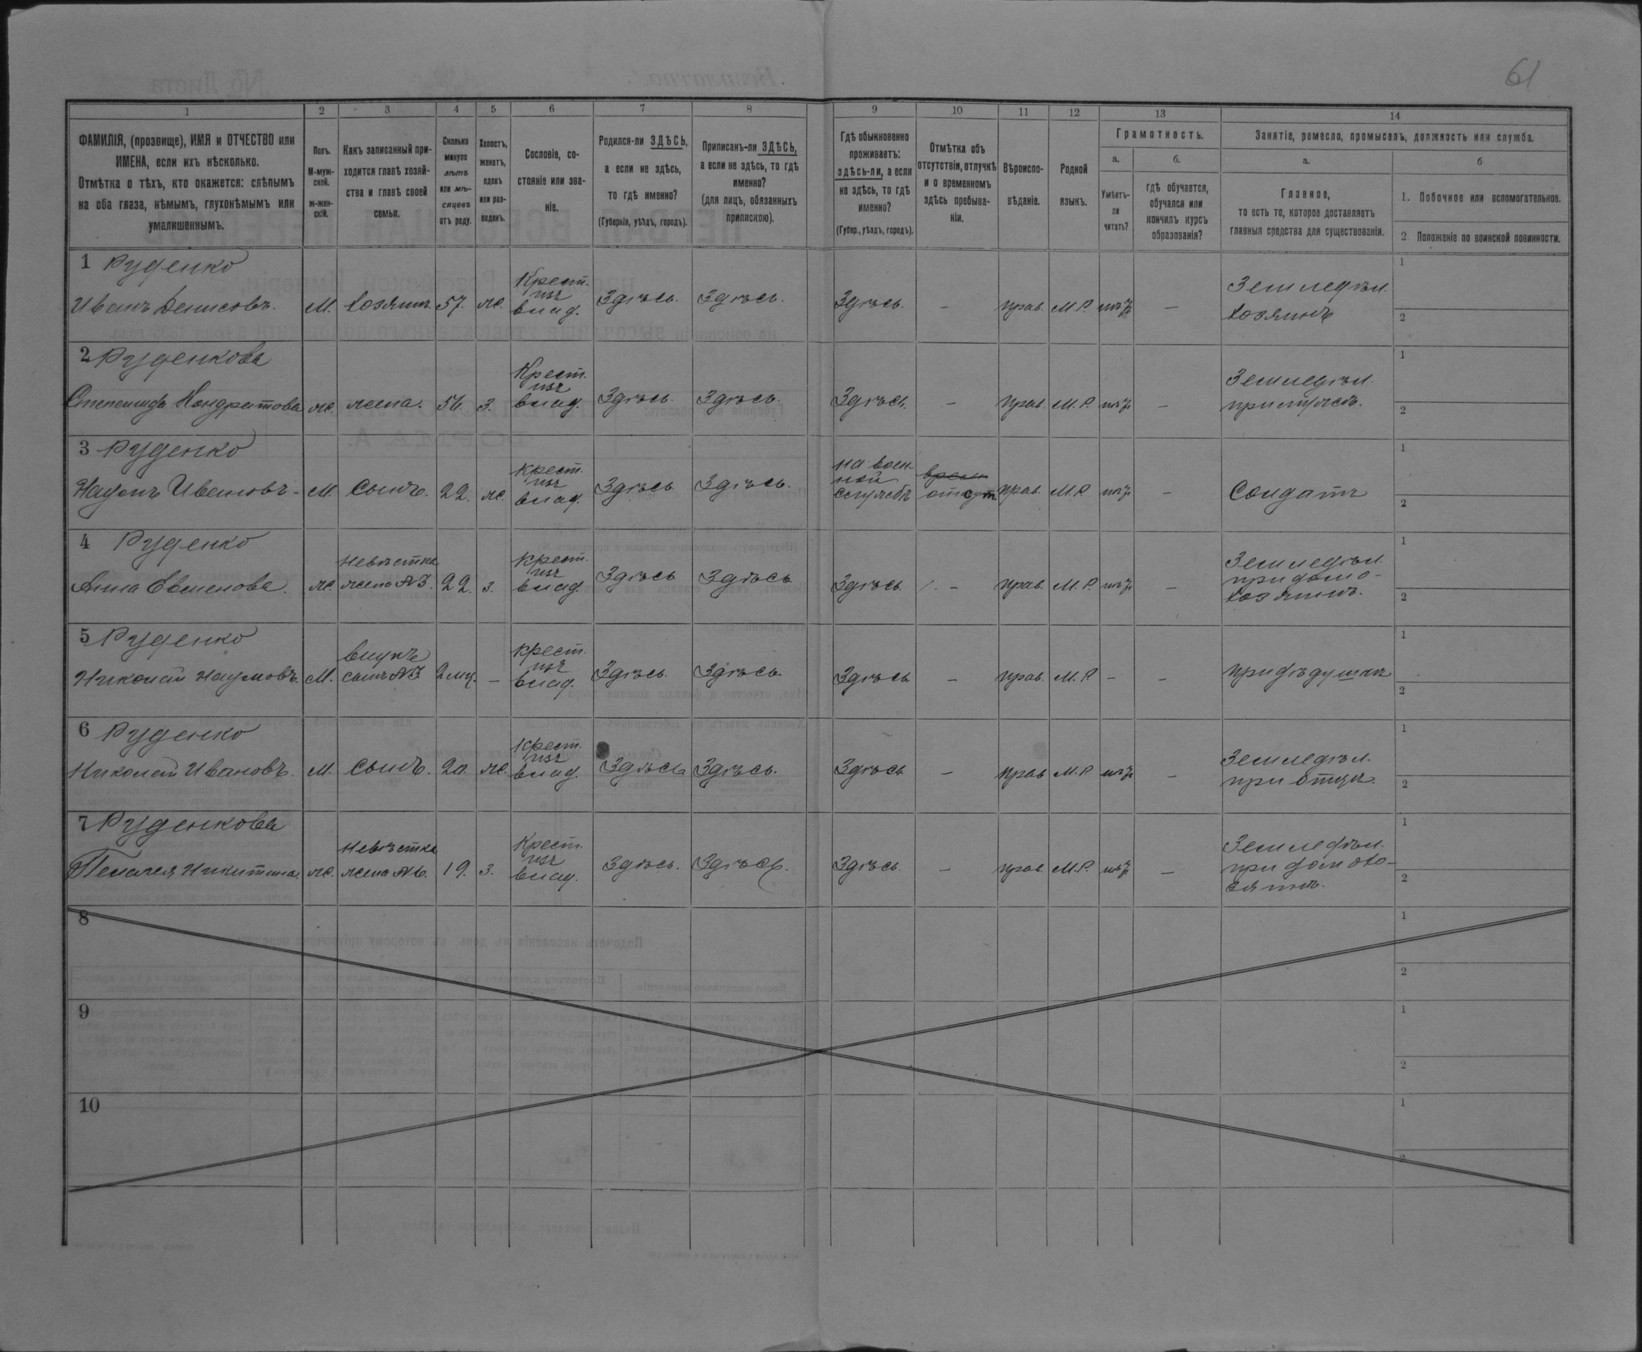 61
1 2 3 4 5 6 7 8 9 10 11 12 13 14
ФАМИЛІЯ, (прозвище), ИМЯ и ОТЧЕСТВО или
ИМЕНА, если ихъ нѣсколько.
Отмѣтка о тѣхъ, кто окажется: слѣпымъ
на оба глаза, нѣмымъ, глухонѣмымъ или
умалишеннымъ.
Полъ.
М-муж-
ской.
ж-жен-
скій.
Какъ записанный при-
ходится главѣ хозяй-
ства и главѣ своей
семьи.
Сколько
минуло
лѣтъ
или мѣ-
сяцевъ
отъ роду.
Холостъ,
женатъ,
вдовъ
или раз-
веденъ.
Сословіе, со-
стояніе или зва-
ніе.
Родился-ли ЗДѢСЬ,
а если не здѣсь,
то гдѣ именно?
(Губернія, уѣздъ, городъ).
Приписанъ-ли ЗДѢСЬ,
а если не здѣсь, то гдѣ
именно?
(для лицъ, обязанныхъ
припискою).
Гдѣ обыкновенно
проживаетъ:
здѣсь-ли, а если
не здѣсь, то гдѣ
именно?
(Губер., уѣздъ, городъ).
Отмѣтка объ
отсутствіи, отлучкѣ
и о временномъ
здѣсь пребыва-
ніи.
Вѣроиспо-
вѣданіе.
Родной
языкъ.
Грамотность.
а. б.
Умѣетъ-
ли
читать?
гдѣ обучается,
обучался или
кончилъ курсъ
образованія?
Занятіе, ремесло, промыселъ, должность или служба.
а. б
Главное,
то есть то, которое доставляетъ
главныя средства для существованія.
1. Побочное или вспомогательное.
2. Положеніе по воинской повинности.
1 Руденко
Иванъ Денисовъ. М. Хозяинъ 57. ж. Крест. изъ влад. Здѣсь. Здѣсь. Здѣсь. – прав. М.Р. нѣтъ – Земледѣл. хозяинъ
1
2
2 Руденкова
Степанида Кондратова ж. жена. 56. з. Крест. изъ влад. Здѣсь Здѣсь. Здѣсь. – прав. М.Р. нѣтъ – Земледѣл. при мужѣ.
1
2
3 Руденко
Наумъ Ивановъ. М. сынъ. 22. ж. крест. изъ влад. Здѣсь Здѣсь. на воен ной службѣ отсут прав. М.Р. нѣтъ – солдатъ
1
2
4 Руденко
Анна Евменова. ж. Невѣстка жена №3. 22. з. крест. изъ влад. Здѣсь Здѣсь Здѣсь – прав. М.Р. нѣтъ – Земледѣл. при домо- хозяинѣ.
1
2
5 Руденко
Николай Наумовъ М. внукъ сынъ №3 2 мц. – крест. изъ влад. Здѣсь. Здѣсь. Здѣсь – прав. М.Р. – – при дѣдушкѣ
1
2
6 Руденко
Николай Ивановъ. М. сынъ. 20. ж. Крест. изъ влад. Здѣсь Здѣсь. Здѣсь – прав. М.Р. нѣтъ – Земледѣл. при отцѣ.
1
2
7 Руденкова
Пелагея Никитина ж. Невѣстка жена №6. 19. з. Крест. изъ влад. Здѣсь. Здѣсь. Здѣсь. – прав. М.Р. нѣтъ – Земледѣл. при домохо- зяинѣ.
1
2
8
1
2
9
1
2
10
1
2